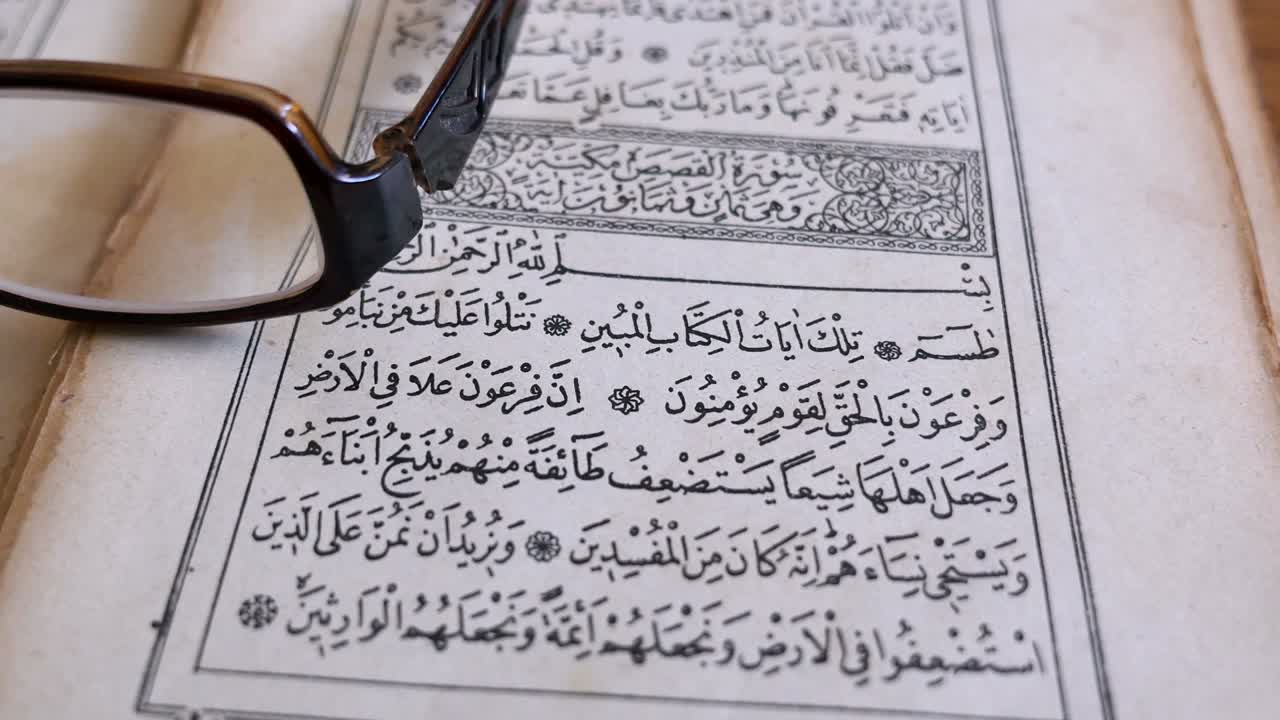 وَاَنْ اَتْلُوَا الْقُرْاٰنَ فَمَنِ اهْتَدٰى فَاِنَّمَا يَهْتَدٖى
ضَلَّ فَقُلْ اِنَّمَٓا اَنَا۬ مِنَ الْمُنْذِرٖينَ ❁ وَقُلِ الْحَمْدُ
اٰيَاتِهٖ فَتَعْرِفُونَهَا وَمَا رَبُّكَ بِغَافِلٍ عَمَّا تَعْ
سُورَةُ الْقَصَصِ مَكِّيَّةٌ
وَهِيَ ثَمَانٍ وَثَمَانُونَ اٰيَةً
بِسْمِ اللّٰهِ الرَّحْمٰنِ الرَّ
طٰسٓمٓ ❁ تِلْكَ اٰيَاتُ الْكِتَابِ الْمُبٖينِ ❁ نَتْلُوا عَلَيْكَ مِنْ نَبَأِ مُو
وَفِرْعَوْنَ بِالْحَقِّ لِقَوْمٍ يُؤْمِنُونَ ❁ اِنَّ فِرْعَوْنَ عَلَا فِي الْاَرْضِ
وَجَعَلَ اَهْلَهَا شِيَعاً يَسْتَضْعِفُ طَٓائِفَةً مِنْهُمْ يُذَبِّحُ اَبْنَٓاءَهُمْ
وَيَسْتَحْيٖ نِسَٓاءَهُمْ اِنَّهُ كَانَ مِنَ الْمُفْسِدٖينَ ❁ وَنُرٖيدُ اَنْ نَمُنَّ عَلَى الَّذٖينَ
اسْتُضْعِفُوا فِي الْاَرْضِ وَنَجْعَلَهُمْ اَئِمَّةً وَنَجْعَلَهُمُ الْوَارِثٖينَ ❁